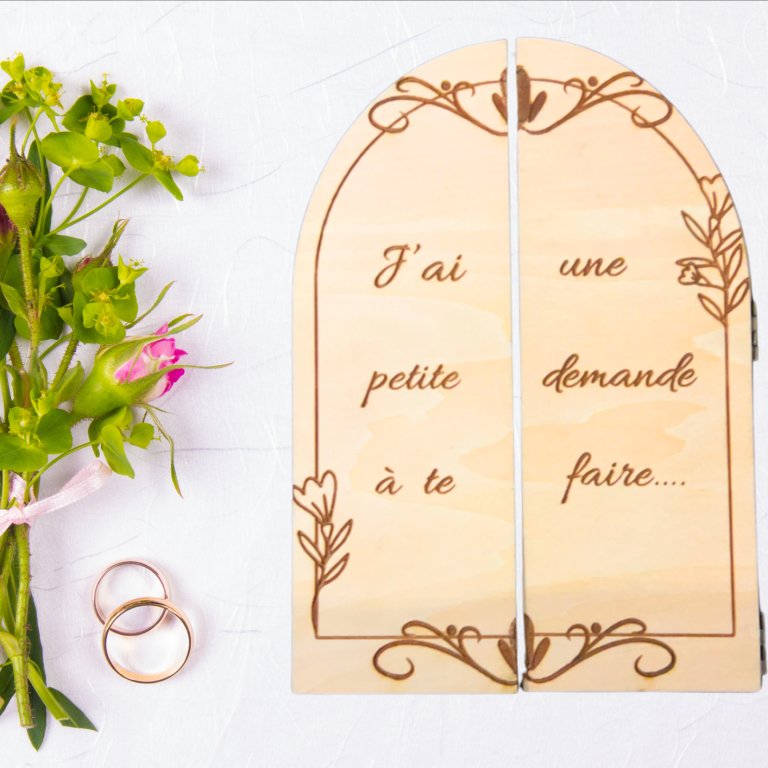 J'ai une
petite demande
à te faire....